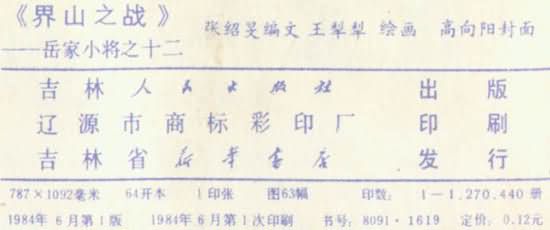 《界山之战》
——岳家小将之十二
张绍旻编文 王犁犁 绘画 高向阳封面
吉林人民出版社 出版
辽源市商标彩印厂 印刷
吉林省新华书店 发行
787×1092毫米 64开本 1印张 图63幅 印数：1—1,270,440册
1984年6月第1版 1984年6月第1次印刷 书号：8091·1619 定价：0.12元